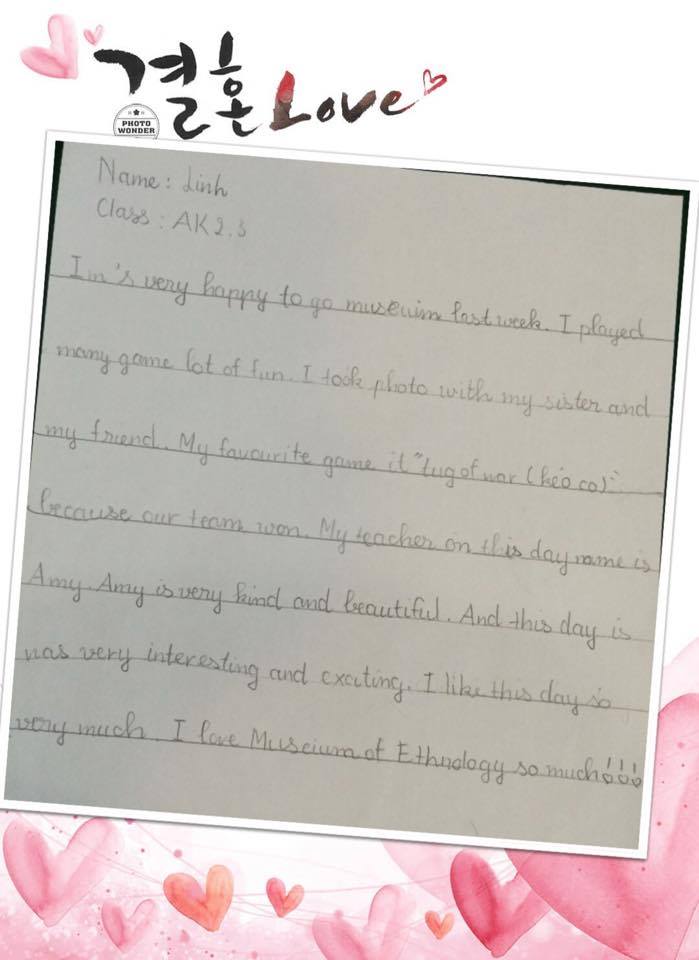 결혼 Love
PHOTO
WONDER
Name : Linh
Class : AK2.3
Im's very happy to go museuim last week. I played
many game lot of fun. I took photo with my sister and
my friend. My favourite game it "tug of war (kéo co)"
because our team won. My teacher on this day name is
Amy. Amy is very kind and beautiful. And this day is
was very interesting and exciting. I like this day so
very much. I love Muscium of Ethnology so much!!!